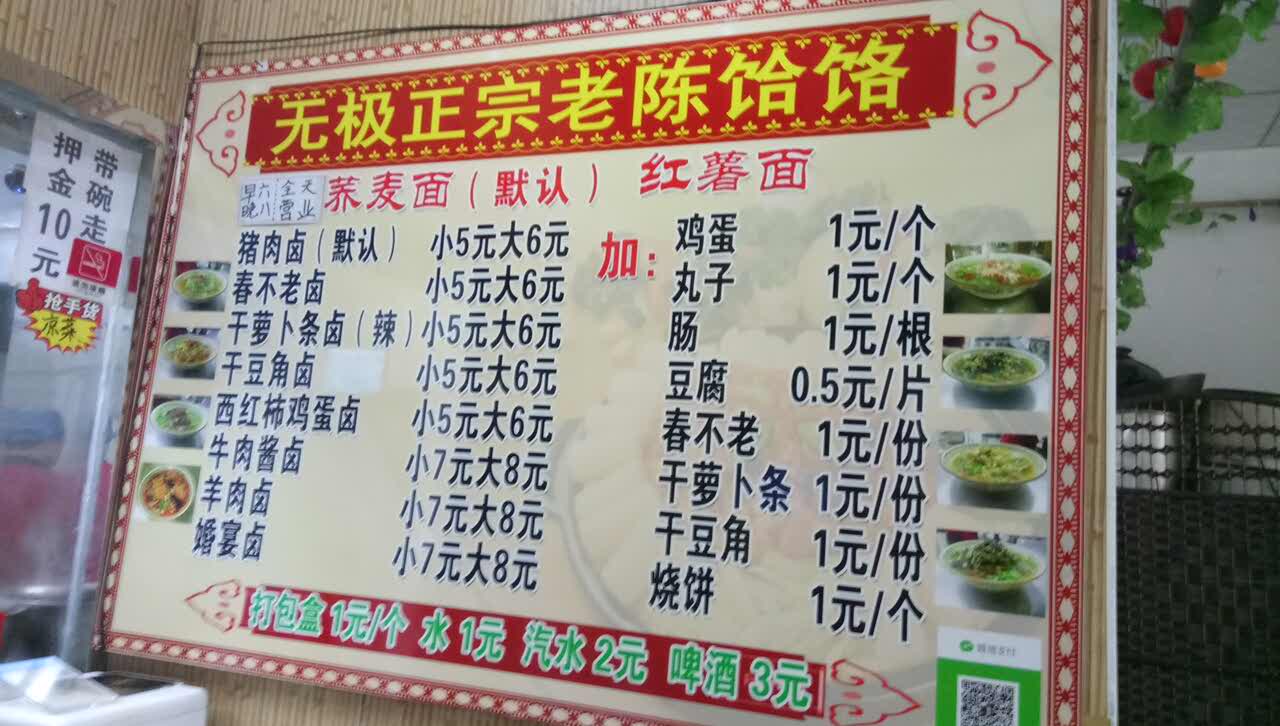 无极正宗老陈饸饹
早六 全天
晚八 营业
荞麦面(默认) 红薯面
猪肉卤(默认) 小5元大6元
春不老卤 小5元大6元
干萝卜条卤(辣) 小5元大6元
干豆角卤 小5元大6元
西红柿鸡蛋卤 小5元大6元
牛肉酱卤 小7元大8元
羊肉卤 小7元大8元
婚宴卤 小7元大8元
加: 鸡蛋 1元/个
丸子 1元/个
肠 1元/根
豆腐 0.5元/片
春不老 1元/份
干萝卜条 1元/份
干豆角 1元/份
烧饼 1元/个
打包盒1元/个 水1元 汽水2元 啤酒3元
带碗走
押金10元
抢手货
凉菜